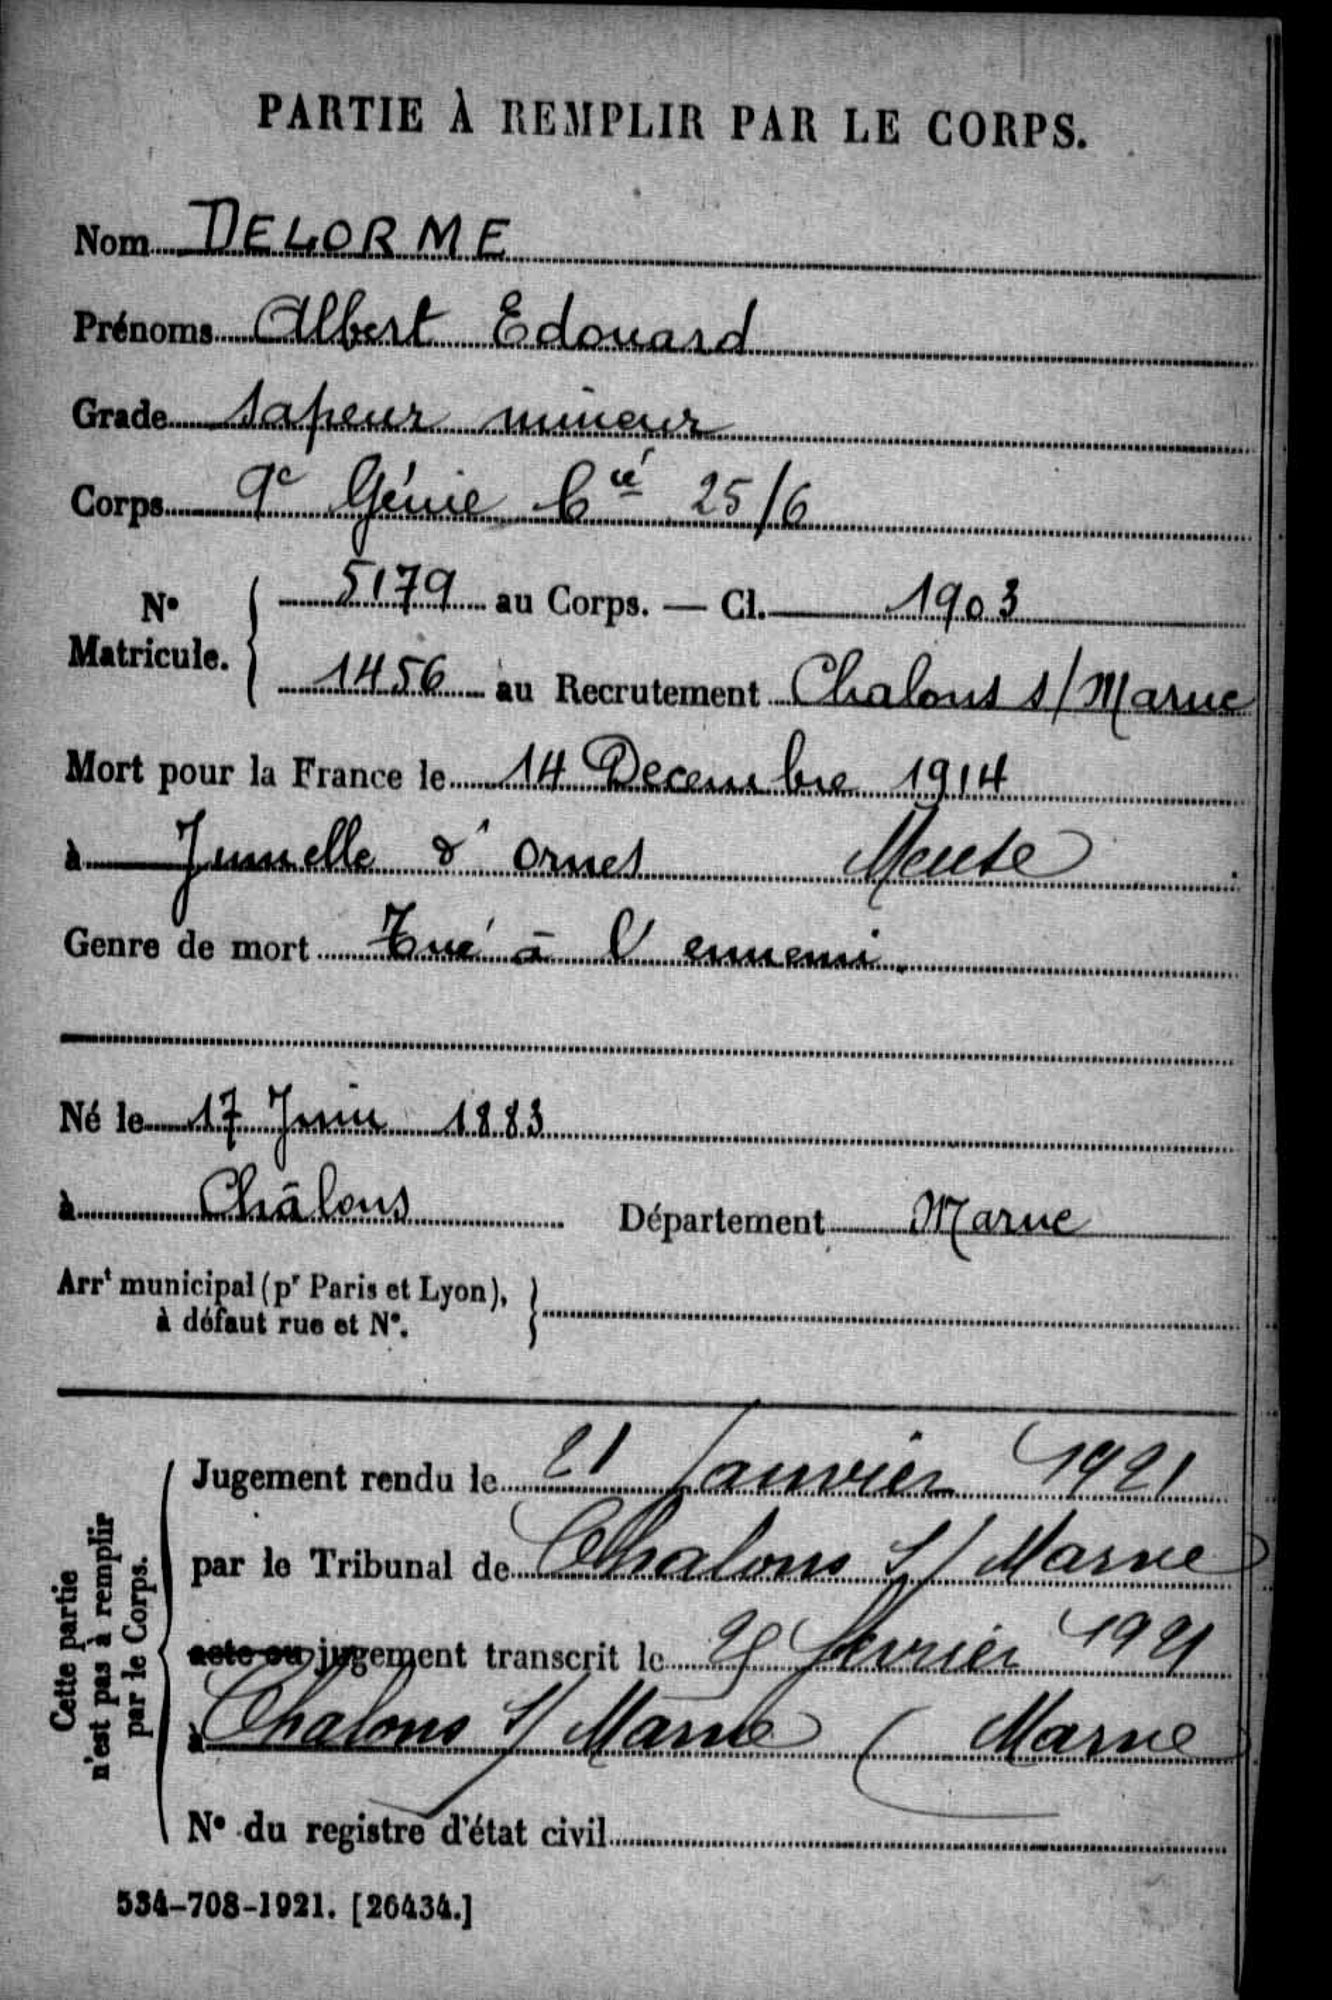 PARTIE À REMPLIR PAR LE CORPS.
Nom DELORME
Prénoms Albert Edouard
Grade sapeur mineur
Corps 9e Génie Cie 25/6
No Matricule. { 5179 au Corps. — Cl. 1903
1456 au Recrutement Chalons s/ Marne
Mort pour la France le 14 Decembre 1914
à Jumelle d'ornes Meuse
Genre de mort Tué à l'ennemi.
Né le 17 Juin 1883
à Châlons Département Marne
Arrt municipal (pr Paris et Lyon),
à défaut rue et No. }
Cette partie
n'est pas à remplir
par le Corps.
Jugement rendu le 21 Janvier 1921
par le Tribunal de Chalons S/ Marne
acte ou jugement transcrit le février 1921
à Chalons S/ Marne ( Marne
No du registre d'état civil
534-708-1921. [26434.]